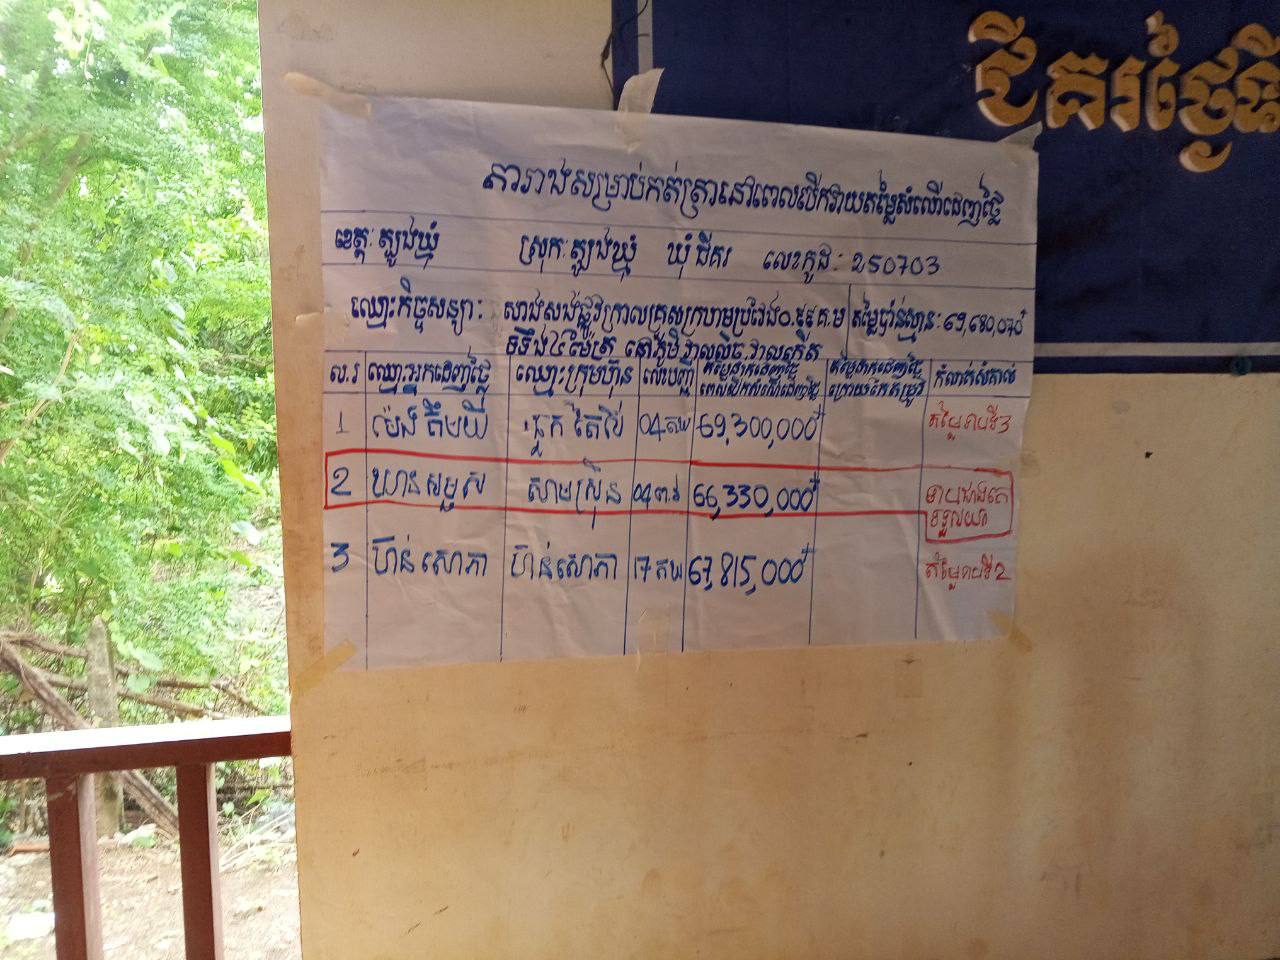 ជីគរថ្ងៃទី
តារាងសម្រាប់កត់ត្រានៅពេលបើកវាយតម្លៃសំណើដេញថ្លៃ
ខេត្ត: ត្បូងឃ្មុំ ស្រុក: ត្បូងឃ្មុំ ឃុំ ជីគរ លេខកូដ: ២50703
ឈ្មោះកិច្ចសន្យា: សាងសង់ផ្លូវក្រាលគ្រួសក្រហមប្រវែង០.៩៩គ.ម តម្លៃប៉ាន់ស្មាន: ៦9,680,070៛
ទទឹង៤ម៉ែត្រ នៅភូមិ វាលលិច វាលកើត
ល.រ ឈ្មោះអ្នកដេញថ្លៃ ឈ្មោះក្រុមហ៊ុន លេខបញ្ជី តម្លៃដាក់ដេញថ្លៃ ពេលបើកសំណើដេញថ្លៃ តម្លៃដាក់ដេញថ្លៃ ក្រោយកែតម្រូវ កំណត់សំគាល់
1 ម៉េង គឹមយី 04 69,300,000៛ តម្លៃទាបទី3
2 ឃាន សាមស្រ៊ុន 04 66,330,000៛ ទាបជាងគេ
3 ប៊ន់ សោភា ប៊ន់ សោភា 17 67,815,000៛ តម្លៃទាបទី2